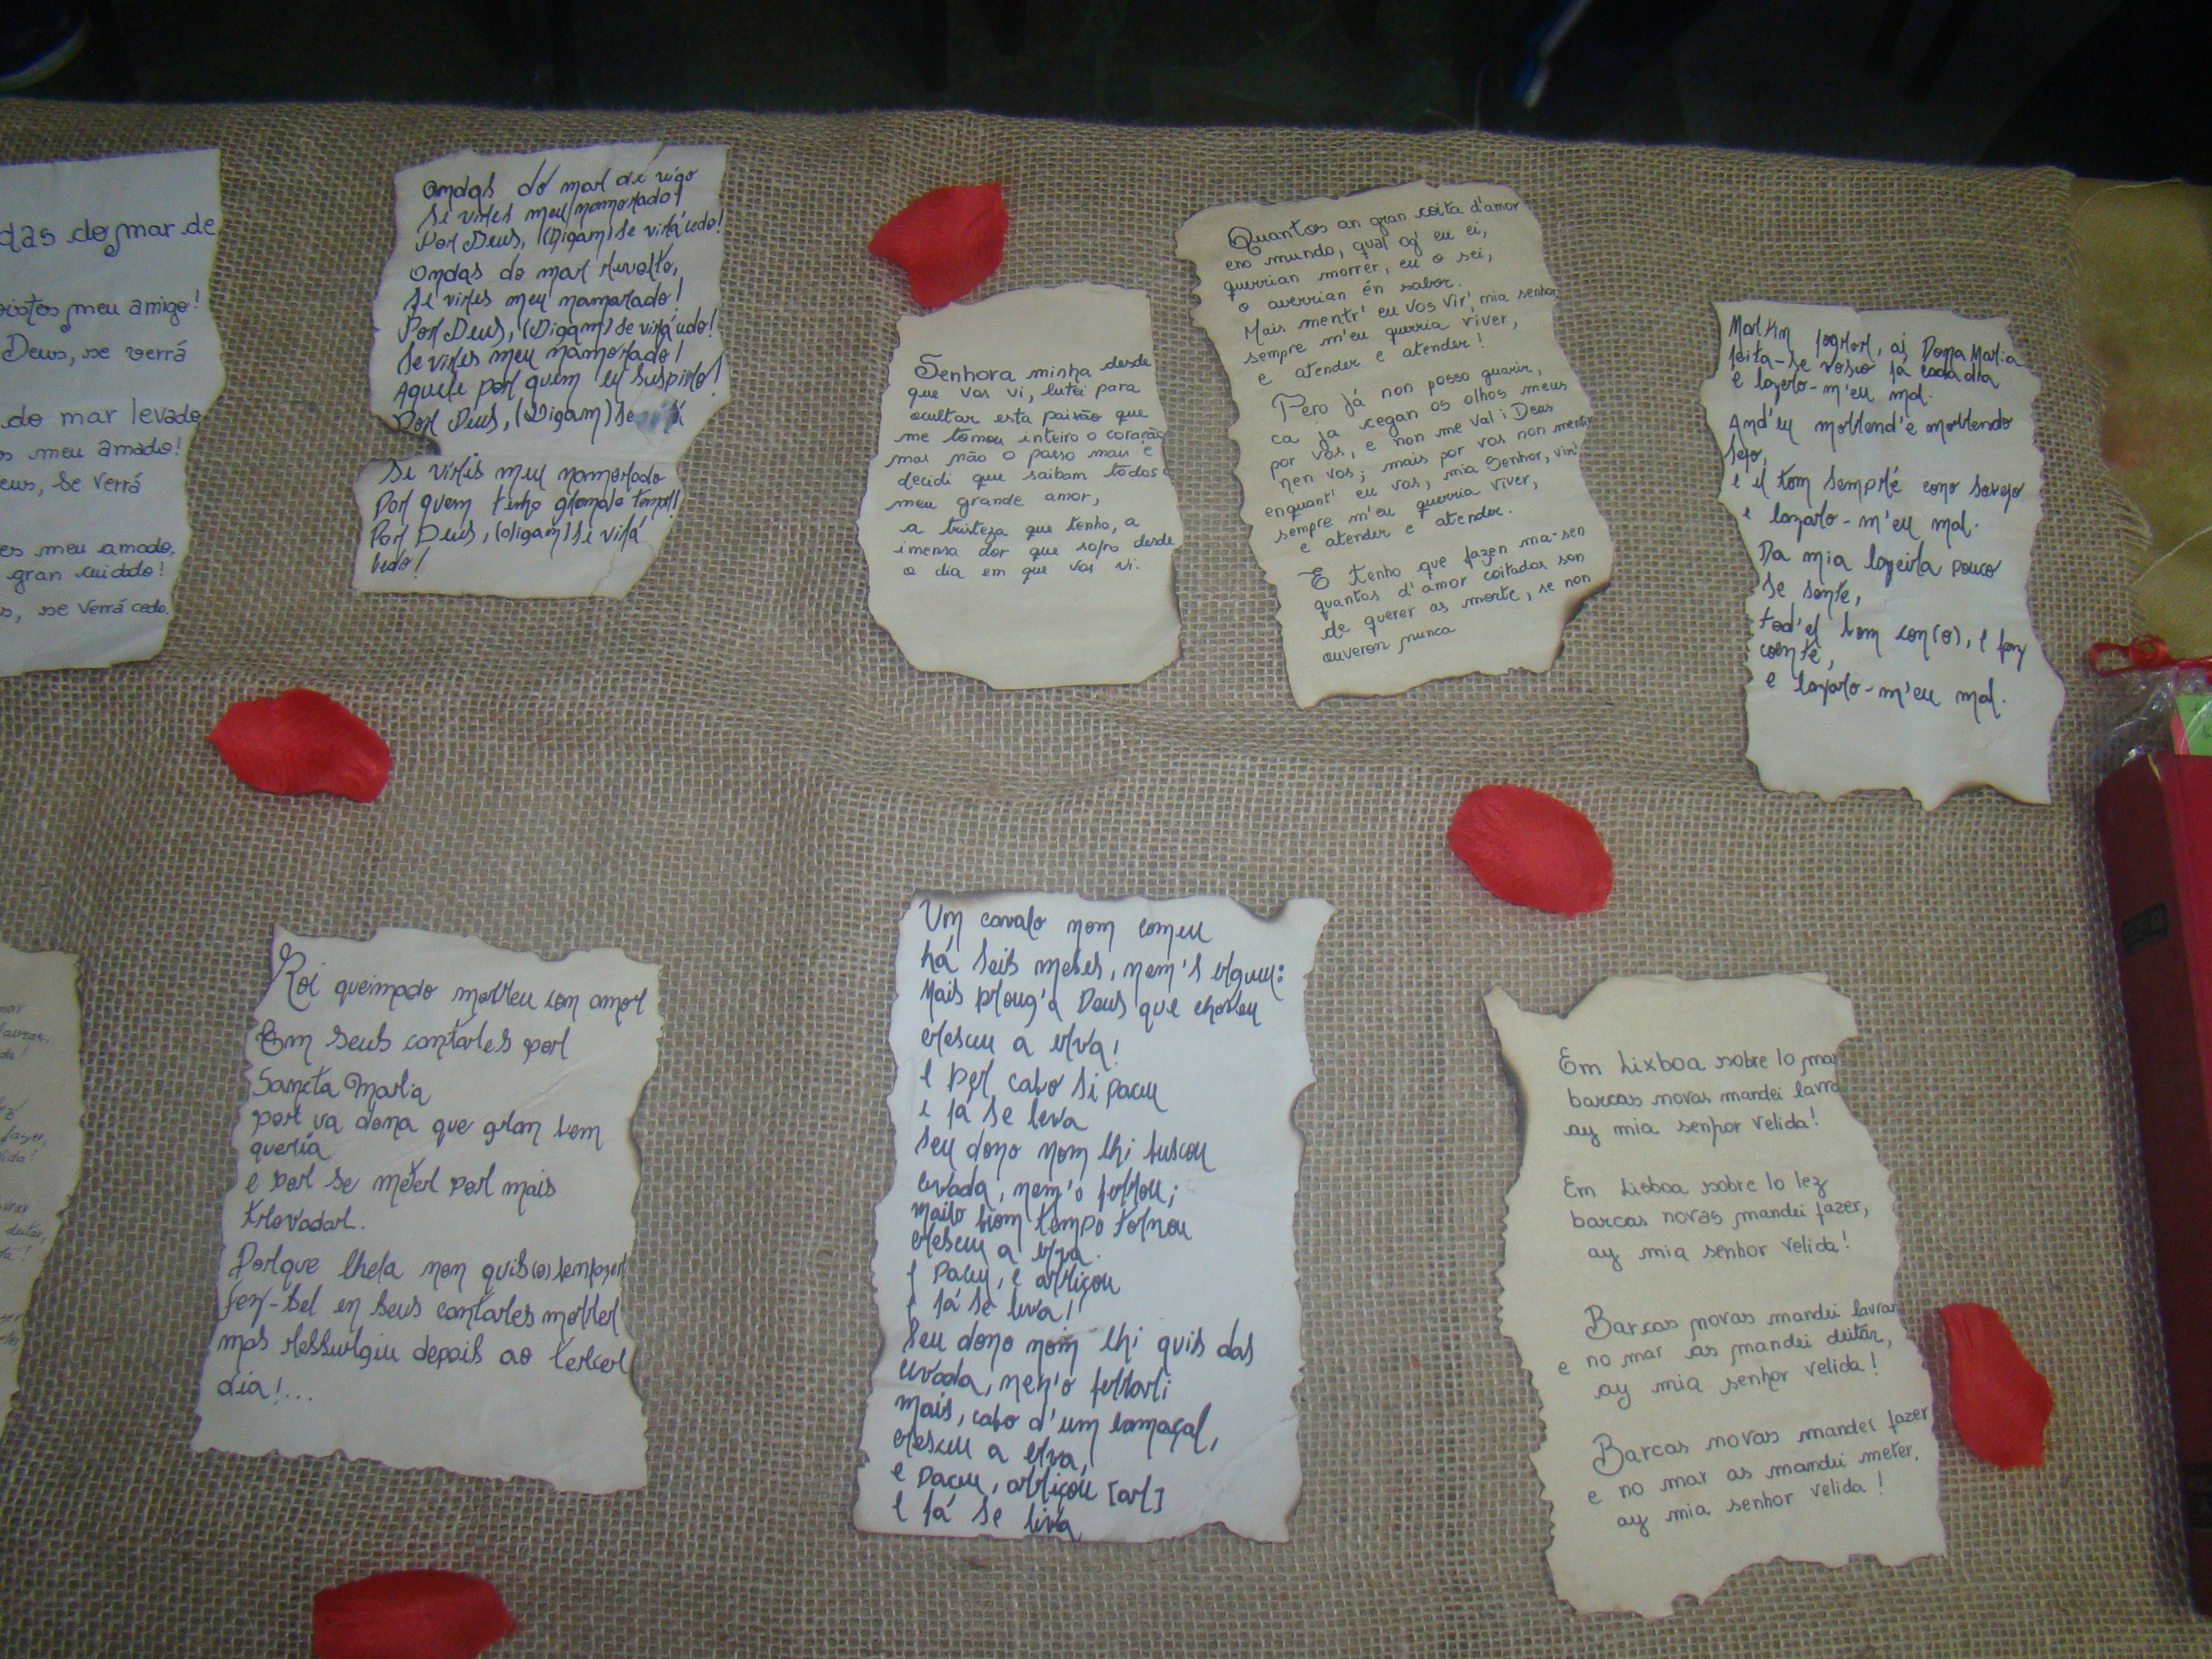 das do mar de
oistes meu amigo!
Deus, se verrá
do mar levado
meu amado!
eus, se verrá
es meu amado,
gran cuidado!
s, se verrá cedo.
Ondas do mar de vigo
Se vires meu namorado!
Por Deus, (Digam) se virá cedo!
Ondas do mar revolto,
Se vires meu namorado!
Por Deus, (Digam) se virá cedo!
Se vires meu namorado!
Aquele por quem eu suspiro!
Por Deus, (Digam) se
Se vires meu namorado
Por quem tenho grande temor!
Por Deus, (digam) se virá
cedo!
Senhora minha desde
que vos vi, lutei para
ocultar esta paixão que
me tomou inteiro o coração
mas não o posso mais e
decidi que saibam todos o
meu grande amor,
a tristeza que tenho, a
imensa dor que sofro desde
o dia em que vos vi.
Quantos an gran coita d'amor
eno mundo, qual og' eu ei,
querrian morrer, eu o sei,
o averrian én sabor.
Mais mentr' eu vos vir', mia senhor
sempre m'eu querria viver,
e atender e atender!
Pero já non posso guarir,
ca ja cegan os olhos meus
por vos, e non me val i Deus
nen vos; mais por vos non mentir
enquant' eu vos, mia Senhor, vir'
sempre m'eu querria viver,
e atender e atender.
E tenho que fazen ma-sen
quantos d'amor coitados son
de querer as morte, se non
ouveron nunca
Martin jograr, ai Dona Maria
jeita-se vosco já cada dia
e lazero-m'eu mal.
And'eu morrend'e morrendo
sejo,
e el tom sempr'e cono sovejo
e lazaro-m'eu mal.
Da mia lazeira pouco
se sente,
tod'el bem con(o), e faz
coente,
e lazaro-m'eu mal.
Roi queimado morreu con amor
Em seus cantares por
Sancta Maria
por ua dona que gran bem
queria
e por se meter por mais
trovadar.
Porque lhela non quis(o) bem fazer
fez-sel en seus cantares morrer
mas ressurgiu depois ao tercer
dia!...
Um cavalo nom comeu
há seis meses, nem's ergueu:
Mais proug'a Deus que choveu
cresceu a erva!
e per cabo si paceu
e já se leva
Seu dono nom lhi buscou
cevada, nem'o ferrou;
mailo bom tempo tornou
cresceu a erva.
e paceu, e arriçou
e já se leva!
Seu dono nom lhi quis das
cevada, nen'o ferrari
mais, cabo d'um lamaçal,
cresceu a erva,
e paceu, arriçou [ar]
e já se leva
Em Lixboa sobre lo mar
barcas novas mandei lavra
ay mia senhor velida!
Em Lisboa sobre lo lez
barcas novas mandei fazer,
ay mia senhor velida!
Barcas novas mandei lavrar
e no mar as mandei deitar,
ay mia senhor velida!
Barcas novas mandei fazer
e no mar as mandei meter,
ay mia senhor velida!